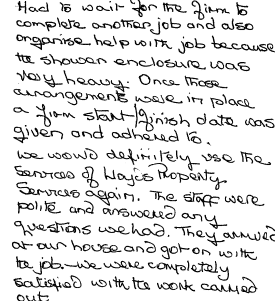 Had to wait for the firm to
complete another job and also
organise help with job because
the shower enclosure was
very heavy. Once those
arrangements were in place
a firm start/finish date was
given and adhered to.
We would definitely use the
services of Wajes Property
Services again. The staff were
polite and answered any
questions we had. They arrived
at our house and got on with
the job - we were completely
satisfied with the work carried
out.